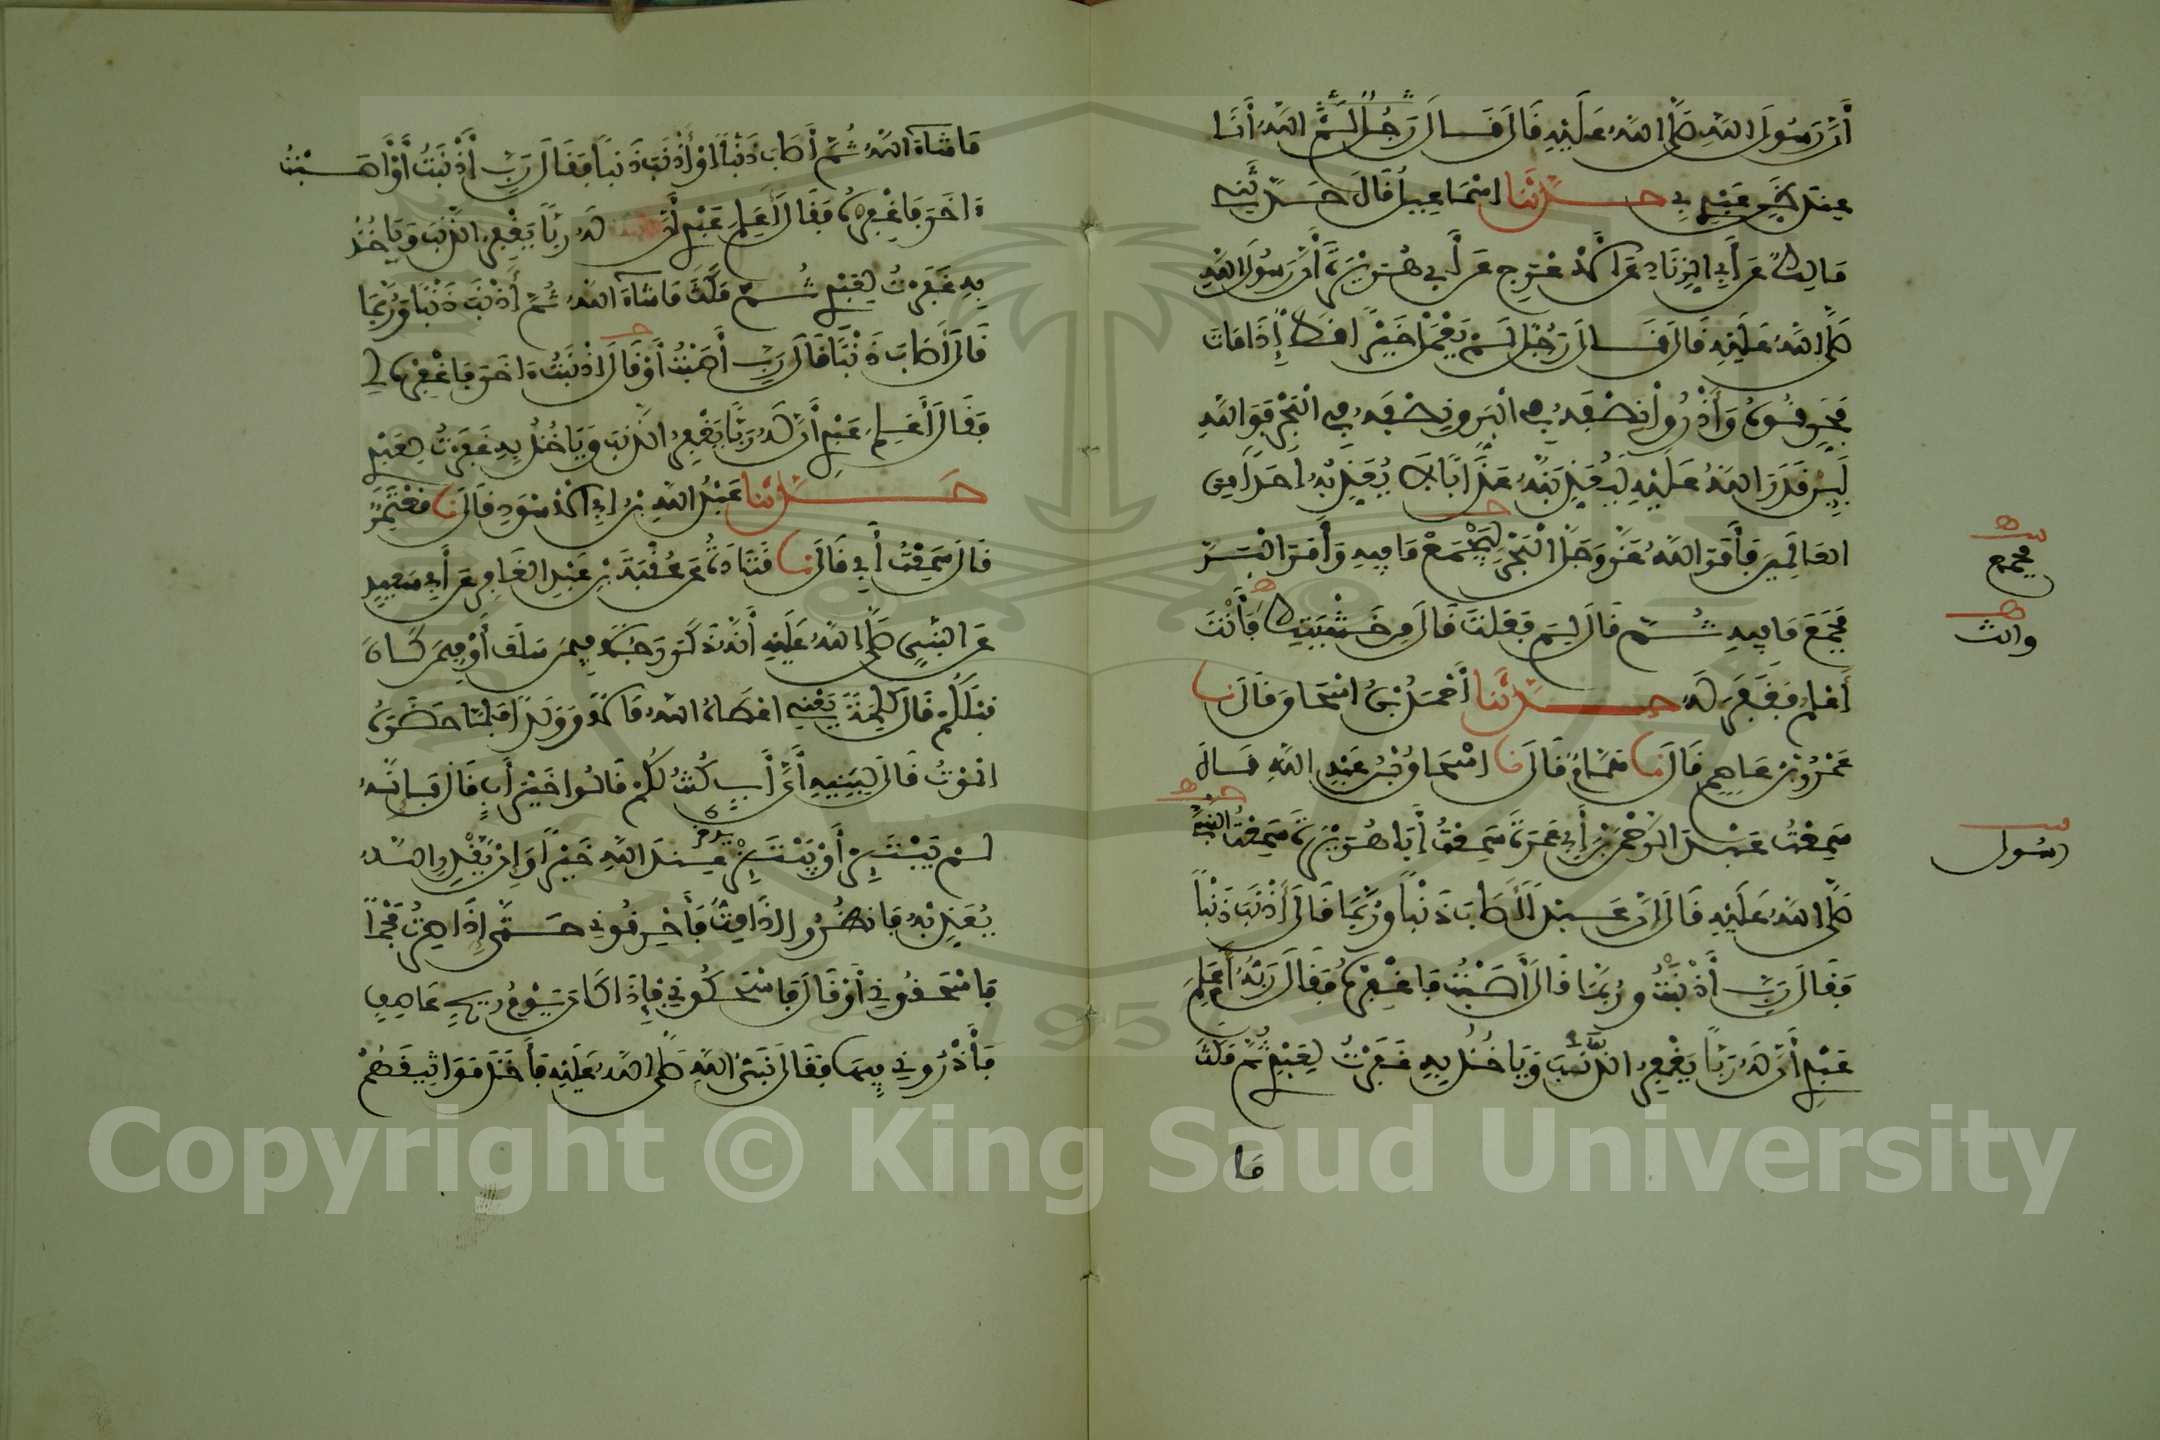 أَنَّ رَسُولَ اللهِ صَلَّى اللهُ عَلَيْهِ قَالَ قَالَ رَجُلٌ لَمْ اللهُ أَنَا
عِنْدَ ظَنِّ عَبْدِي بِي حَدَّثَنَا إِسْمَاعِيلُ قَالَ حَدَّثَنِي
مَالِكٌ عَنْ أَبِي الزِّنَادِ عَنِ الْأَعْرَجِ عَنْ أَبِي هُرَيْرَةَ أَنَّ رَسُولَ اللهِ
صَلَّى اللهُ عَلَيْهِ قَالَ قَالَ رَجُلٌ لَمْ يَعْمَلْ خَيْرًا قَطُّ إِذَا مَاتَ
فَحَرِّقُوهُ وَاذْرُوا نِصْفَهُ فِي الْبَرِّ وَنِصْفَهُ فِي الْبَحْرِ فَوَاللهِ
لَئِنْ قَدَرَ اللهُ عَلَيْهِ لَيُعَذِّبَنَّهُ عَذَابًا لَا يُعَذِّبُهُ أَحَدًا مِنَ
الْعَالَمِينَ فَأَمَرَ اللهُ عَزَّ وَجَلَّ الْبَحْرَ لِيَجْمَعْ مَا فِيهِ وَأَمَرَ الْبَرَّ
فَجَمَعَ مَا فِيهِ ثُمَّ قَالَ لِمَ فَعَلْتَ قَالَ مِنْ خَشْيَتِكَ فَأَنْتَ
أَعْلَمُ فَغَفَرَ لَهُ حَدَّثَنَا أَحْمَدُ بْنُ إِسْحَاقَ قَالَ نا
عَمْرُو بْنُ عَاصِمٍ قَالَ نا هَمَّامٌ قَالَ نا إِسْحَاقُ بْنُ عَبْدِ اللهِ قَالَ
سَمِعْتُ عَبْدَ الرَّحْمَنِ بْنَ أَبِي عَمْرَةَ سَمِعْتُ أَبَا هُرَيْرَةَ سَمِعْتُ النَّبِيَّ
صَلَّى اللهُ عَلَيْهِ قَالَ إِنَّ عَبْدًا أَصَابَ ذَنْبًا وَرُبَّمَا قَالَ أَذْنَبَ ذَنْبًا
فَقَالَ رَبِّ أَذْنَبْتُ وَرُبَّمَا قَالَ أَصَبْتُ فَاغْفِرْهُ فَقَالَ رَبُّهُ أَعَلِمَ
عَبْدِي أَنَّ لَهُ رَبًّا يَغْفِرُ الذَّنْبَ وَيَأْخُذُ بِهِ غَفَرْتُ لِعَبْدِي ثُمَّ مَكَثَ
مَا
فجمع
وانت
رسول
مَا شَاءَ اللهُ ثُمَّ أَصَابَ ذَنْبًا أَوْ أَذْنَبَ ذَنْبًا فَقَالَ رَبِّ أَذْنَبْتُ أَوْ أَصَبْتُ
ءَاخَرَ فَاغْفِرْهُ فَقَالَ أَعَلِمَ عَبْدِي أَنَّ لَهُ رَبًّا يَغْفِرُ الذَّنْبَ وَيَأْخُذُ
بِهِ غَفَرْتُ لِعَبْدِي ثُمَّ مَكَثَ مَا شَاءَ اللهُ ثُمَّ أَذْنَبَ ذَنْبًا وَرُبَّمَا
قَالَ أَصَابَ ذَنْبًا قَالَ رَبِّ أَصَبْتُ أَوْ قَالَ أَذْنَبْتُ ءَاخَرَ فَاغْفِرْهُ لِي
فَقَالَ أَعَلِمَ عَبْدِي أَنَّ لَهُ رَبًّا يَغْفِرُ الذَّنْبَ وَيَأْخُذُ بِهِ غَفَرْتُ لِعَبْدِي
حَدَّثَنَا عَبْدُ اللهِ بْنُ أَبِي الْأَسْوَدِ قَالَ نا مُعْتَمِرٌ
قَالَ سَمِعْتُ أَبِي قَالَ نا قَتَادَةُ عَنْ عُقْبَةَ بْنِ عَبْدِ الْغَافِرِ عَنْ أَبِي سَعِيدٍ
عَنِ النَّبِيِّ صَلَّى اللهُ عَلَيْهِ أَنَّهُ ذَكَرَ رَجُلًا فِيمَنْ سَلَفَ أَوْ فِيمَنْ كَانَ
قَبْلَكُمْ قَالَ كَلِمَةً يَعْنِي أَعْطَاهُ اللهُ مَالًا وَوَلَدًا فَلَمَّا حَضَرَهُ
الْمَوْتُ قَالَ لِبَنِيهِ أَيَّ أَبٍ كُنْتُ لَكُمْ قَالُوا خَيْرَ أَبٍ قَالَ فَإِنَّهُ
لَمْ يَبْتَئِرْ أَوْ يَبْتَئِزْ عِنْدَ اللهِ خَيْرًا وَإِنْ يَقْدِرِ اللهُ
يُعَذِّبْهُ فَانْظُرُوا إِذَا مِتُّ فَأَحْرِقُونِي حَتَّى إِذَا صِرْتُ فَحْمًا
فَاسْحَقُونِي أَوْ قَالَ فَاسْحَكُونِي فَإِذَا كَانَ يَوْمُ رِيحٍ عَاصِفٍ
فَأَذْرُونِي فِيهَا فَقَالَ نَبِيُّ اللهِ صَلَّى اللهُ عَلَيْهِ فَأَخَذَ مَوَاثِيقَهُمْ
Copyright © King Saud University
1957